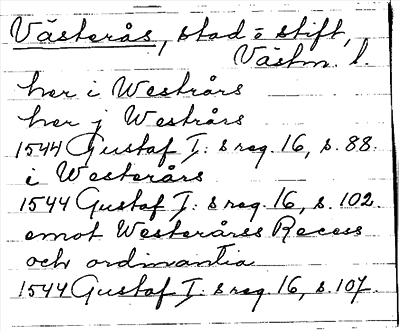 Västerås, stad o stift,
Västm. l.
her i Westrårs
her j Westrårs
1544 Gustaf I: s reg. 16, s. 88.
i Westerårs
1544 Gustaf I: s reg. 16, s. 102.
emot Westerårss Recess
och ordinantia
1544 Gustaf I: s reg. 16, s. 107.